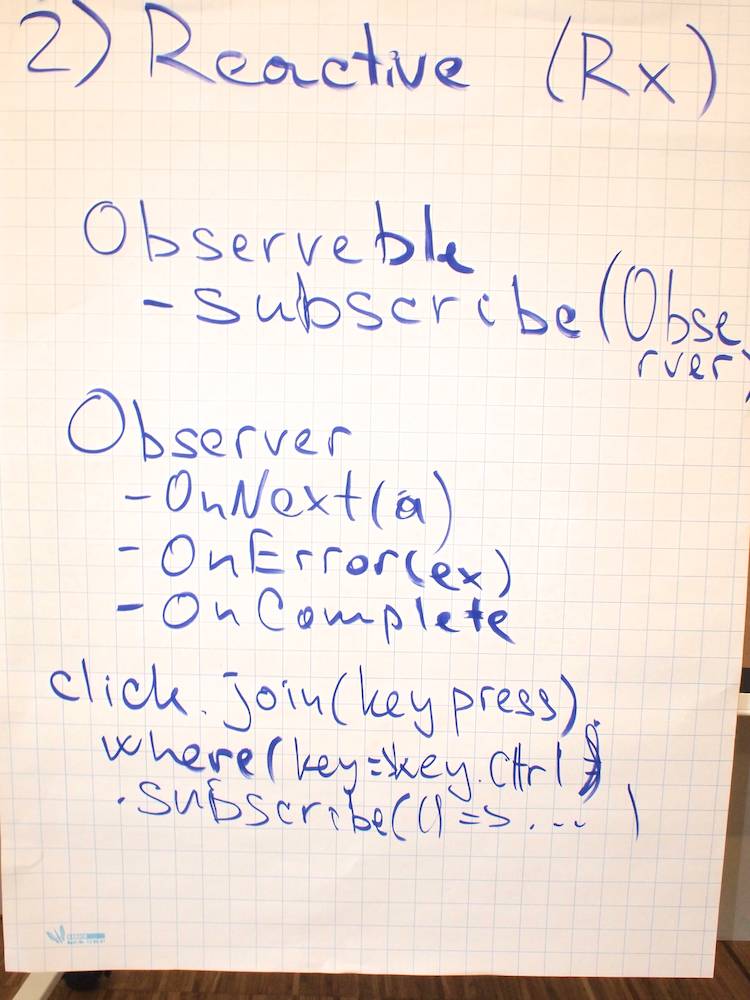 2) Reactive (Rx)
Observeble
- subscribe(Obse
rver)
Observer
- OnNext(a)
- OnError(ex)
- OnComplete
click.join(key press).
where(key=key.Ctrl)
.subscribe(()=>... )